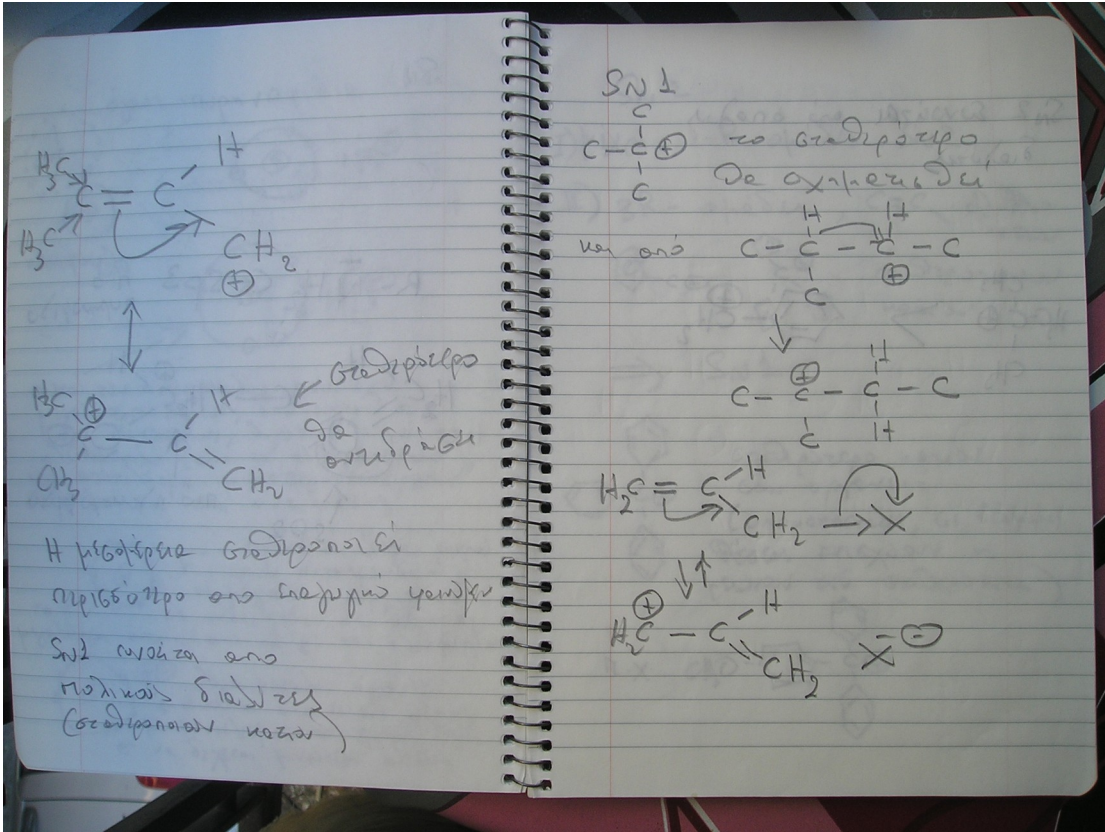 H₃C H
C = C
H₃C CH₂
⊕
σταθερότερο
H₃C ⊕ H
C — C
CH₃ CH₂
θα αντιδράσει
Η μεσομέρεια σταθεροποιεί
περισσότερο από επαγωγικό φαινόμεν
SN1 ευνοείται από
πολικούς διαλύτες
(σταθεροποιούν κατιόν)
SN1
C
C – C ⊕ το σταθερότερο
C θα σχηματισθεί
H H
και από C – C – C – C
C ⊕
⊕ H
C – C – C – C
C H
H₂C = C H
CH₂ → X
⊕
H₂C – C H
CH₂ X ⊖